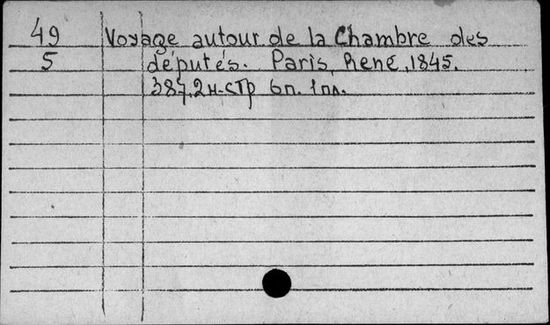 49 Voyage autour de la Chambre des
5 députés. Paris, René, 1845.
387, 2н-стр 6п. 1пл.